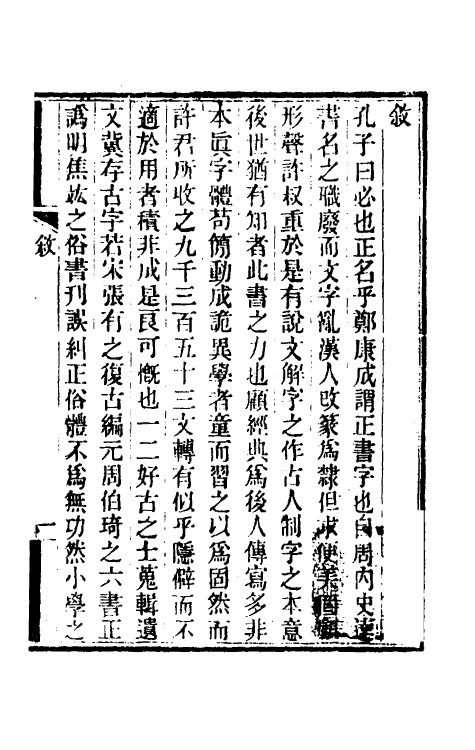 敘
孔子曰必也正名乎鄭康成謂正書字也自周內史達
書名之職廢而文字亂漢人改篆為隸但求便美
形聲許叔重於是有說文解字之作古人制字之本意
後世猶有知者此書之力也顧經典為後人傳寫多非
本真字體苟簡動成詭異學者童而習之以為固然而
許君所收之九千三百五十三文轉有似乎隱僻而不
適於用者積非成是良可慨也一二好古之士蒐輯遺
文冀存古字若宋張有之復古編元周伯琦之六書正
譌明焦竑之俗書刊誤糾正俗體不為無功然小學之
敘
一